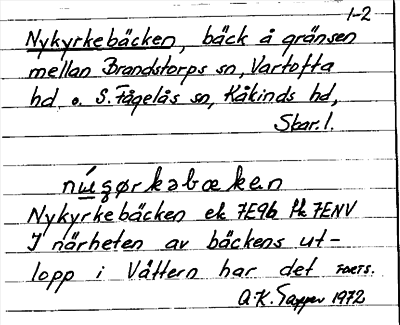 1-2
Nykyrkebäcken, bäck å gränsen
mellan Brandstorps sn, Vartofta
hd o. S. Fågelås sn, Kåkinds hd,
Skar. l.
nẃǥørkəbæken
Nykyrkebäcken ek 7E9b fk 7ENV
I närheten av bäckens ut-
lopp i Vättern har det FORTS.
A.K. 1972